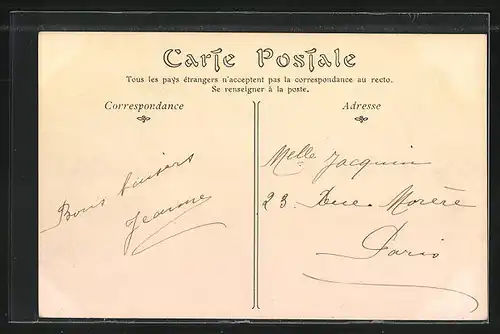 Carte Postale
Tous les pays étrangers n'acceptent pas la correspondance au recto.
Se renseigner à la poste.
Correspondance
Adresse
Bons baisers
Jeanne
Melle Jacquin
23. Rue Morère
Paris